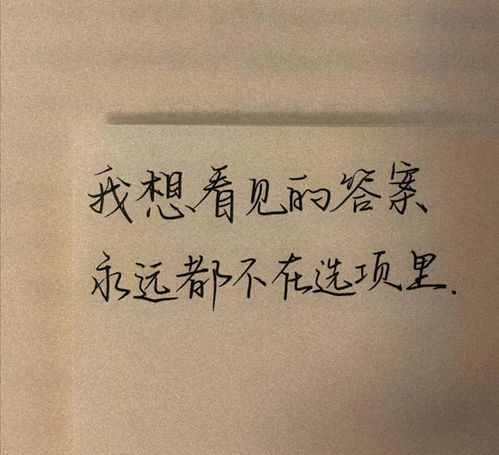 我想看见的答案
永远都不在选项里.